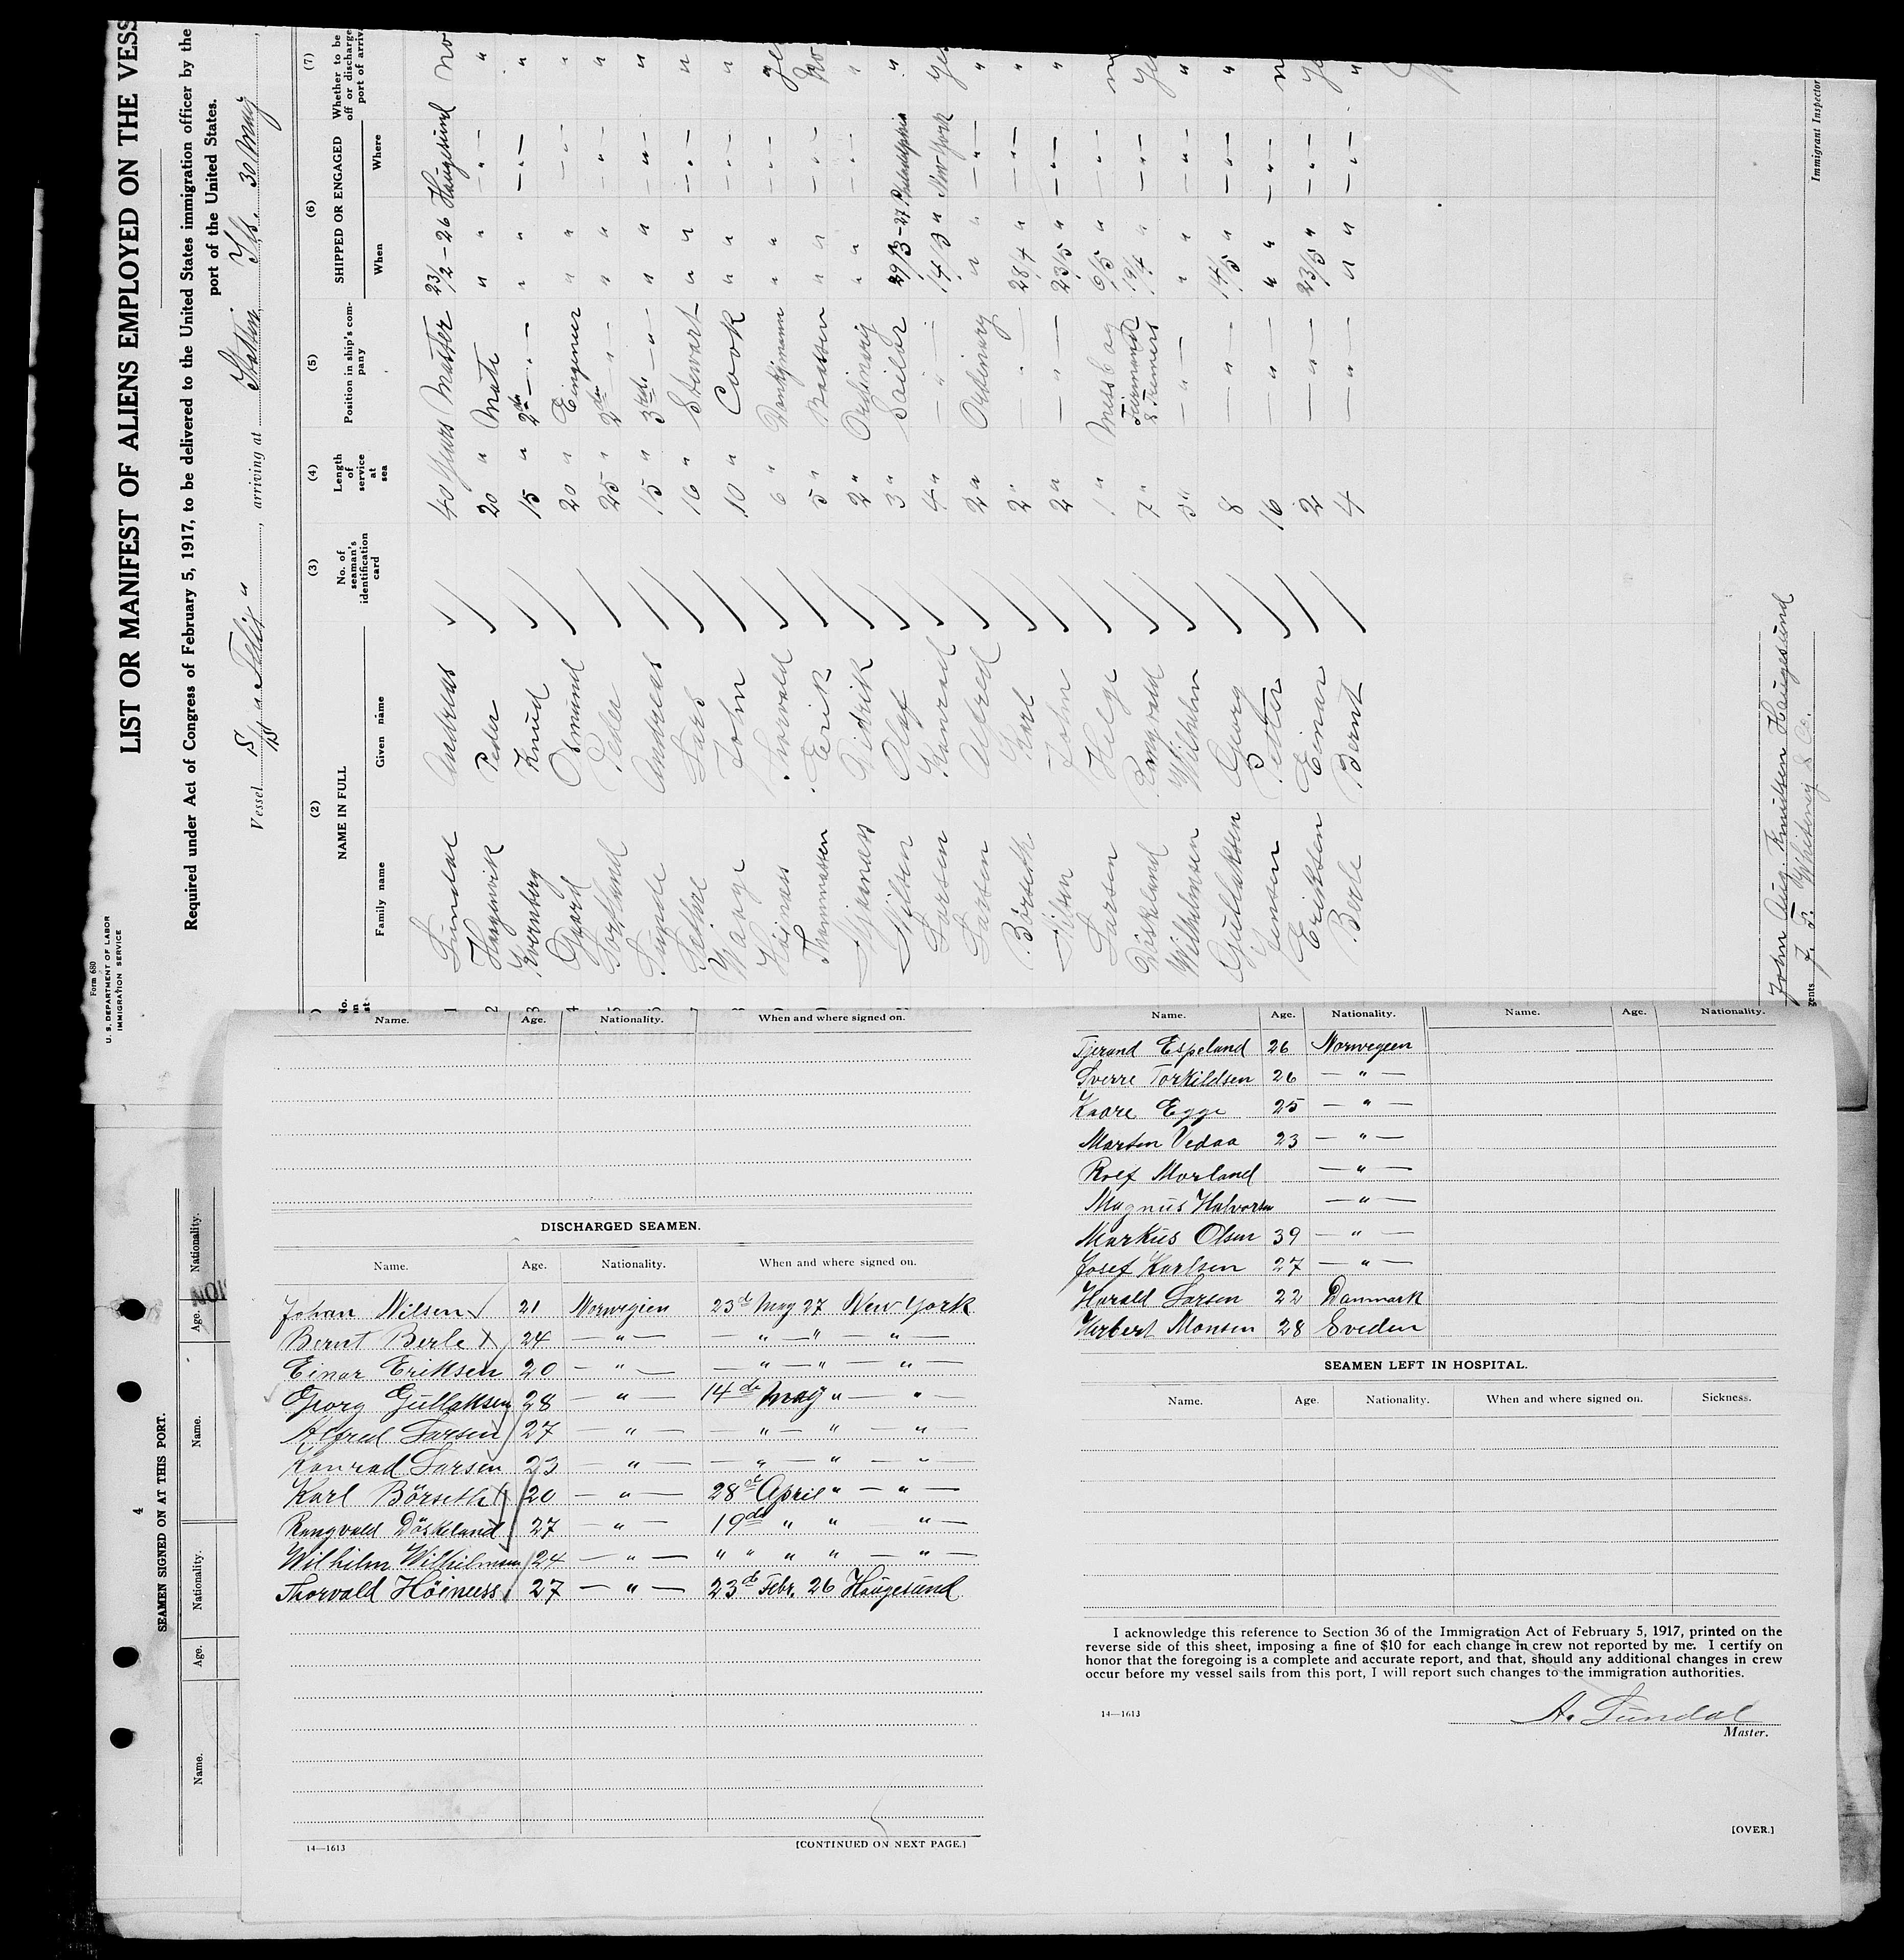 Form 680
U. S. DEPARTMENT OF LABOR
IMMIGRATION SERVICE
LIST OR MANIFEST OF ALIENS EMPLOYED ON THE VESS
Required under Act of Congress of February 5, 1917, to be delivered to the United States immigration officer by the
port of the United States.
Vessel S/S " ", arriving at
(2) (3) (4) (5) (6) (7)
NAME IN FULL No. of seaman's identification card Length of service at sea Position in ship's company SHIPPED OR ENGAGED Whether to be off or discharge port of arriva
Family name Given name When Where
1 Sundal Andreas 40 years Master 23/2 - 26 Haugesund no
2 Peder 20 " Mate " " — " — "
3 Knud 15 " 2de — " — " " — " — "
4 Osmund 20 " " " — " — "
5 Peder 25 " 2de — " — " " — " — "
6 Andreas 15 " 3die — " — " " — " — "
7 Lars 16 " Stewart " " — " — "
8 Waage John 10 " Cook " " — " — "
Höiness Thorvald 6 " " " — " — "
Erik 5 " " " — " — No
Didrik 2 " " " — " — "
Nilsen Olaf 3 " Sailor 29/3 - 27 Philadelphia "
Larsen Konrad 4 " — " — 14/3 " New York Yes
Larsen Alfred 2 " Ordinary " " — " — "
Börseth Karl 2 " — " — 28/4 " — " — "
Nilsen John 2 " — " — 23/5 " — " — "
Larsen Helge 1 " Messboy 6/5 " — " —
Döskeland Rangvald 7 " 19/4 " — " —
Wilhelmsen Wilhelm 5 " — " — " " — " — "
Gullaksen Georg 8 — " — 14/5 " — " — "
Jensen Petter 16 — " — " " — " —
Eriksen Einar 2 — " — 23/5 " — " —
Berle Bernt 4 — " — " " — " — "
John Aug. Knudsen Haugesund
Whiteney & Co.
Immigrant Inspector
4
SEAMEN SIGNED ON AT THIS PORT.
Name. Age. Nationality. Name. Age. Nationality.
Name. Age. Nationality. When and where signed on.
DISCHARGED SEAMEN.
Name. Age. Nationality. When and where signed on.
Johan Nilsen 21 Norwegien 23d May 27 New York
Bernt Berle 24 — " — — " — " — " —
Einar Eriksen 20 — " — — " — " — " —
Georg Gullaksen 28 — " — 14de May " — " —
Alfred Larsen 27 — " — — " — " — " —
Konrad Larsen 23 — " — — " — " — " —
Karl Börseth 20 — " — 28de April " — " —
Rangvald Döskeland 27 — " — 19de " " — " —
Wilhelm Wilhelmsen 24 — " — " " " " — " —
Thorvald Höiness 27 — " — 23d Febr. 26 Haugesund
14—1613 [CONTINUED ON NEXT PAGE.]
Name. Age. Nationality. Name. Age. Nationality.
Tjerand Espeland 26 Norwegien
Sverre Torkildsen 26 — " —
Kaare Egge 25 — " —
Marten Vedaa 23 — " —
Rolf Morland — " —
Magnus Halvorsen — " —
Markus Olsen 39 — " —
Josef Karlsen 27 — " —
Harald Larsen 22 Danmark
Herbert Monsen 28 Sveden
SEAMEN LEFT IN HOSPITAL.
Name. Age. Nationality. When and where signed on. Sickness.
I acknowledge this reference to Section 36 of the Immigration Act of February 5, 1917, printed on the
reverse side of this sheet, imposing a fine of $10 for each change in crew not reported by me. I certify on
honor that the foregoing is a complete and accurate report, and that, should any additional changes in crew
occur before my vessel sails from this port, I will report such changes to the immigration authorities.
14—1613
A. Sundal
Master.
[OVER.]